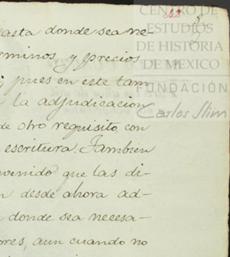 CENTRO DE
ESTUDIOS
DE HISTORIA
DE MEXICO
FUNDACIÓN
Carlos Slim
hasta donde sea ne-
terminos y precios
pues en este tam
la adjudicacion
de otro requisito con
escritura. Tambien
convenido que las di-
n desde ahora ad-
donde sea necesa-
ores, aun cuando no